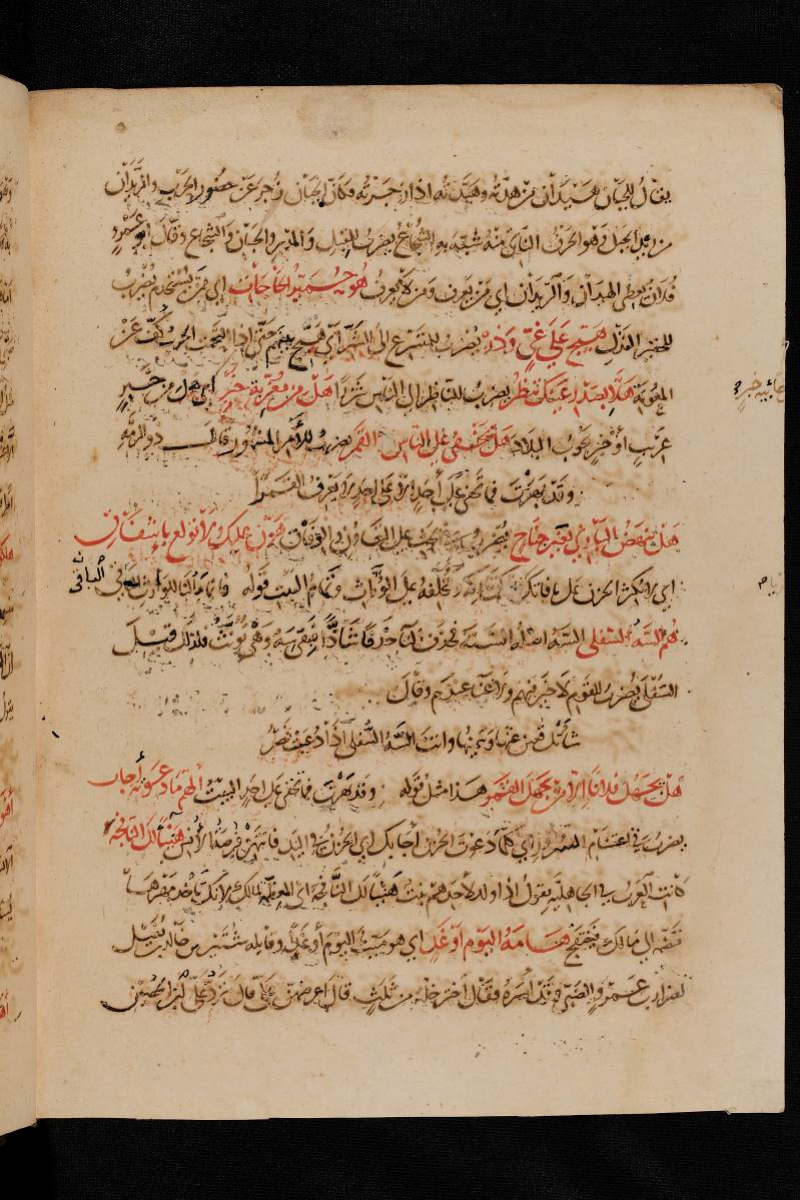 يقال للجبان هيدان من هدته وهيدته اذا زجرته فكان الجبان زجر عن حضور الحرب والريدان
من ريد الجبل وهو الحرف الناتئ منه شبه به الشجاع يضرب للمقبل والمدبر والجبان والشجاع وقال ابو عمرو
فلان يعطى الهيدان والريدان اي من يعرف ومن لا يعرف هو حميد الحاجات اي ممن يستخدم يضرب
للحقير الذليل هيج على غي وذر يضرب للمتسرع الى الشر اي هيج بينهم حتى اذا التحمت الحرب كف عن
المعونة هلا بصدر عينك تنظر يضرب للناظر الى الناس شزرا هل من مغربة خبر اي هل من خبر
غريب أو خبر يجوب البلاد هل يخفى على الناس القمر يضرب للأمر المشهور قال ذو الرمة
وقد بهرت فما تخفى على أحد الا على احد لا يعرف القمرا
هل ينهض البازي بغير جناح يضرب في الحث على التعاون والوفاق هون عليك ولا تولع باشفاق
اي لا تكثر الحزن على ما فاتك من الدنيا فانك تخلفه على الوراث وتمام البيت قوله فانما مالنا للوارث الباقي
هم السه السفلى السه اصله الستة فحذفت التاء حذفا شاذا فبقي سه وهى تؤنث فلذلك قيل
السفلى يضرب للقوم لا خير فيهم ولا غناء عندهم وقال
شأتك قعين غثها وسمينها وانت السه السفلى اذا دعيت نصر
هل يجهل فلانا الا من يجهل القمر هذا مثل قوله وقد بهرت فما تخفى على احد البيت الهم ما دعوته أجاب
يضرب في اغتنام السرور اي كلما دعوت الحزن أجابك اي الحزن في اليد فانتهز فرصة الأنس هنيئا لك النافجة
كانت العرب في الجاهلية تقول اذا ولد لأحدهم بنت هنيئا لك النافجة اي المعظمة لمالك لأنك تأخذ مهرها
فتضمه الى مالك فينتفج هامة اليوم او غد اي هو ميت اليوم أو غد وقائله شتير بن خالد بن نفيل
لضرار بن عمرو الضبي وقد أسره فقال اختر خلة من ثلاث قال اعرضهن علي قال ترد علي ابني الحصين